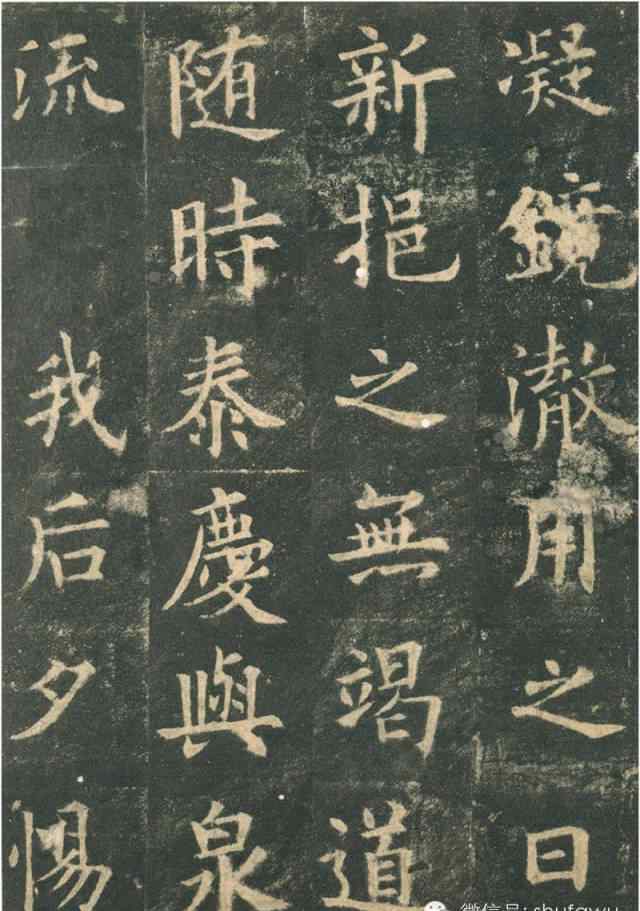 凝鏡澈用之日
新挹之無竭道
随時泰慶與泉
流 我后夕惕
微信号: shufawu